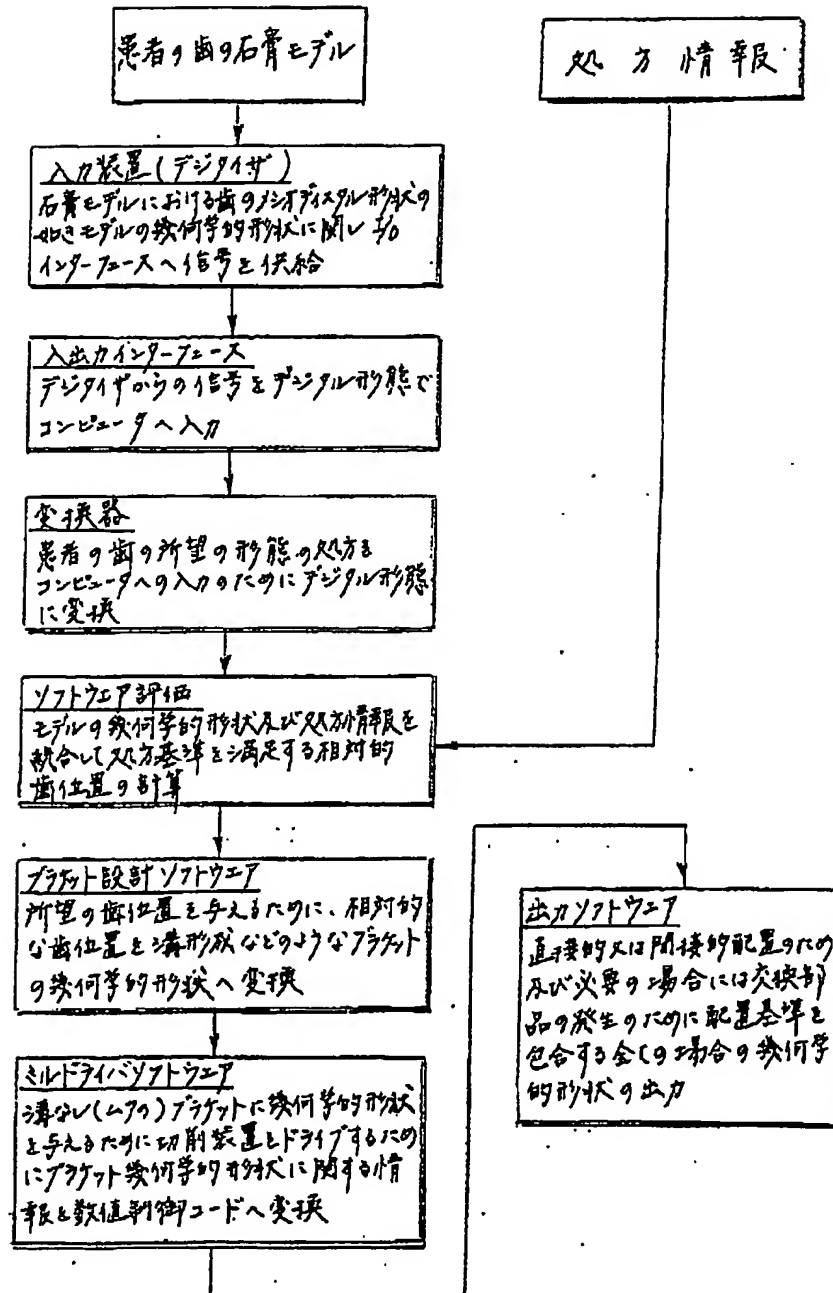 患者の歯の石膏モデル
処方情報
入力装置(デジタイザ)
石膏モデルにおける歯のメシオディスタル形状の
如きモデルの幾何学的形状に関しI/O
インターフェースへ信号を供給
入出力インターフェース
デジタイザからの信号をデジタル形態で
コンピュータへ入力
変換器
患者の歯の所望の形態の処方を
コンピュータへの入力のためにデジタル形態
に変換
ソフトウエア評価
モデルの幾何学的形状及び処方情報を
統合して処方基準を満足する相対的
歯位置の計算
ブラケット設計ソフトウエア
所望の歯位置を与えるために、相対的
な歯位置を溝形状などのようなブラケット
の幾何学的形状へ変換
ミルドライバソフトウエア
溝なし(ムアの)ブラケットに幾何学的形状
を与えるために切削装置をドライブするため
にブラケット幾何学的形状に関する情
報を数値制御コードへ変換
出力ソフトウエア
直接的又は間接的配置のため
及び必要の場合には交換部
品の発生のために配置基準を
包含する全ての場合の幾何学
的形状の出力